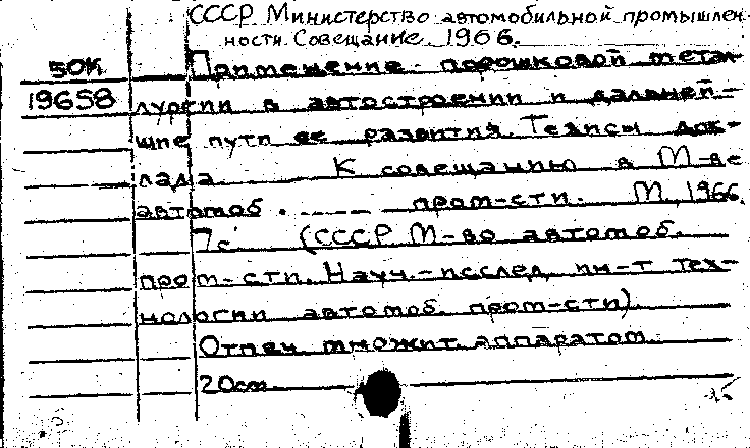 СССР Министерство автомобильной промышлен
ности. Совещание. 1966.
50К Применение порошковой метал-
19658 лургии в автостроении и дальней-
шие пути ее развития. Тезисы док-
лада К совещанию в М-ве
автомоб. пром-сти. М., 1966.
7с. (СССР М-во автомоб.
пром-сти. Науч.-исслед. ин-т тех-
нологии автомоб. пром-сти)
Отпеч. множит. аппаратом.
20см